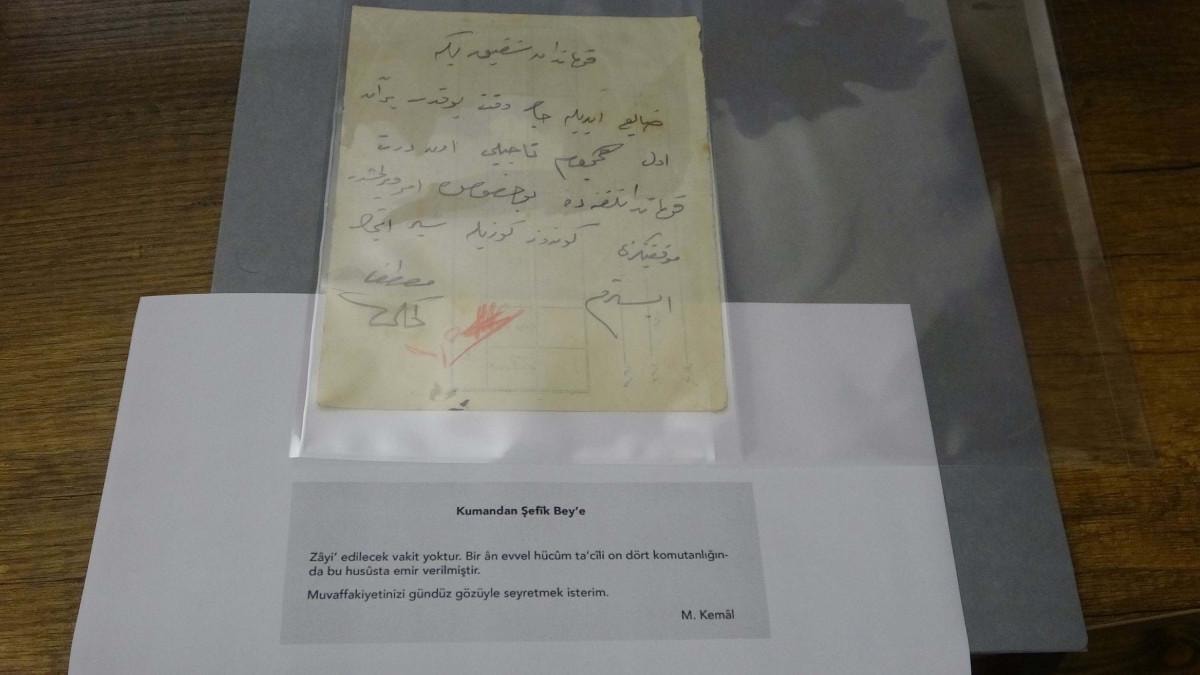 قوماندان شفیق بكه
ضایع ایدیله جك وقت یوقدر بر آن
اول هجوم تعجیلی اون درت
قوماندانلغنده بوخصوصده امر ویرلمشدر
موفقیتكزی كوندوز كوزیله سیر ایتمك
ایسترم
مصطفا
كمال
Kumandan Şefîk Bey’e
Zâyi’ edilecek vakit yoktur. Bir ân evvel hücûm ta’cîli on dört komutanlığın-
da bu husûsta emir verilmiştir.
Muvaffakiyetinizi gündüz gözüyle seyretmek isterim.
M. Kemâl